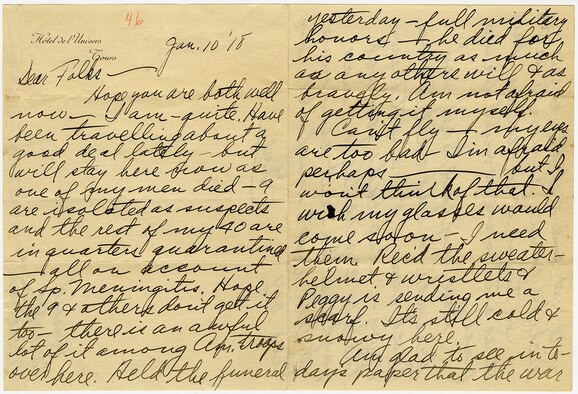 46
Hôtel de l'Univers
Tours
Jan. 10 '18
Dear Folks —
Hope you are both well
now — I am - quite. Have
been travelling about a
good deal lately - but
will stay here now as
one of my men died - 9
are isolated as suspects
and the rest of my 40 are
in quarters quarantined
— all on account
of Sp. Meningitis. Hope
the 9 & others don't get it
too - there is an awful
lot of it among Am. troops
over here. Held the funeral
yesterday - full military
honors - he died for
his country as much
as any others will & as
bravely. Am not afraid
of getting it myself.
Can't fly - my eyes
are too bad - I'm afraid
perhaps ——— but I
won't think of that. I
wish my glasses would
come soon - I need
them. Rec'd the sweater-
helmet & wristlets &
Peggy is sending me a
scarf. It's still cold &
snowy here.
Am glad to see in to-
days paper that the war